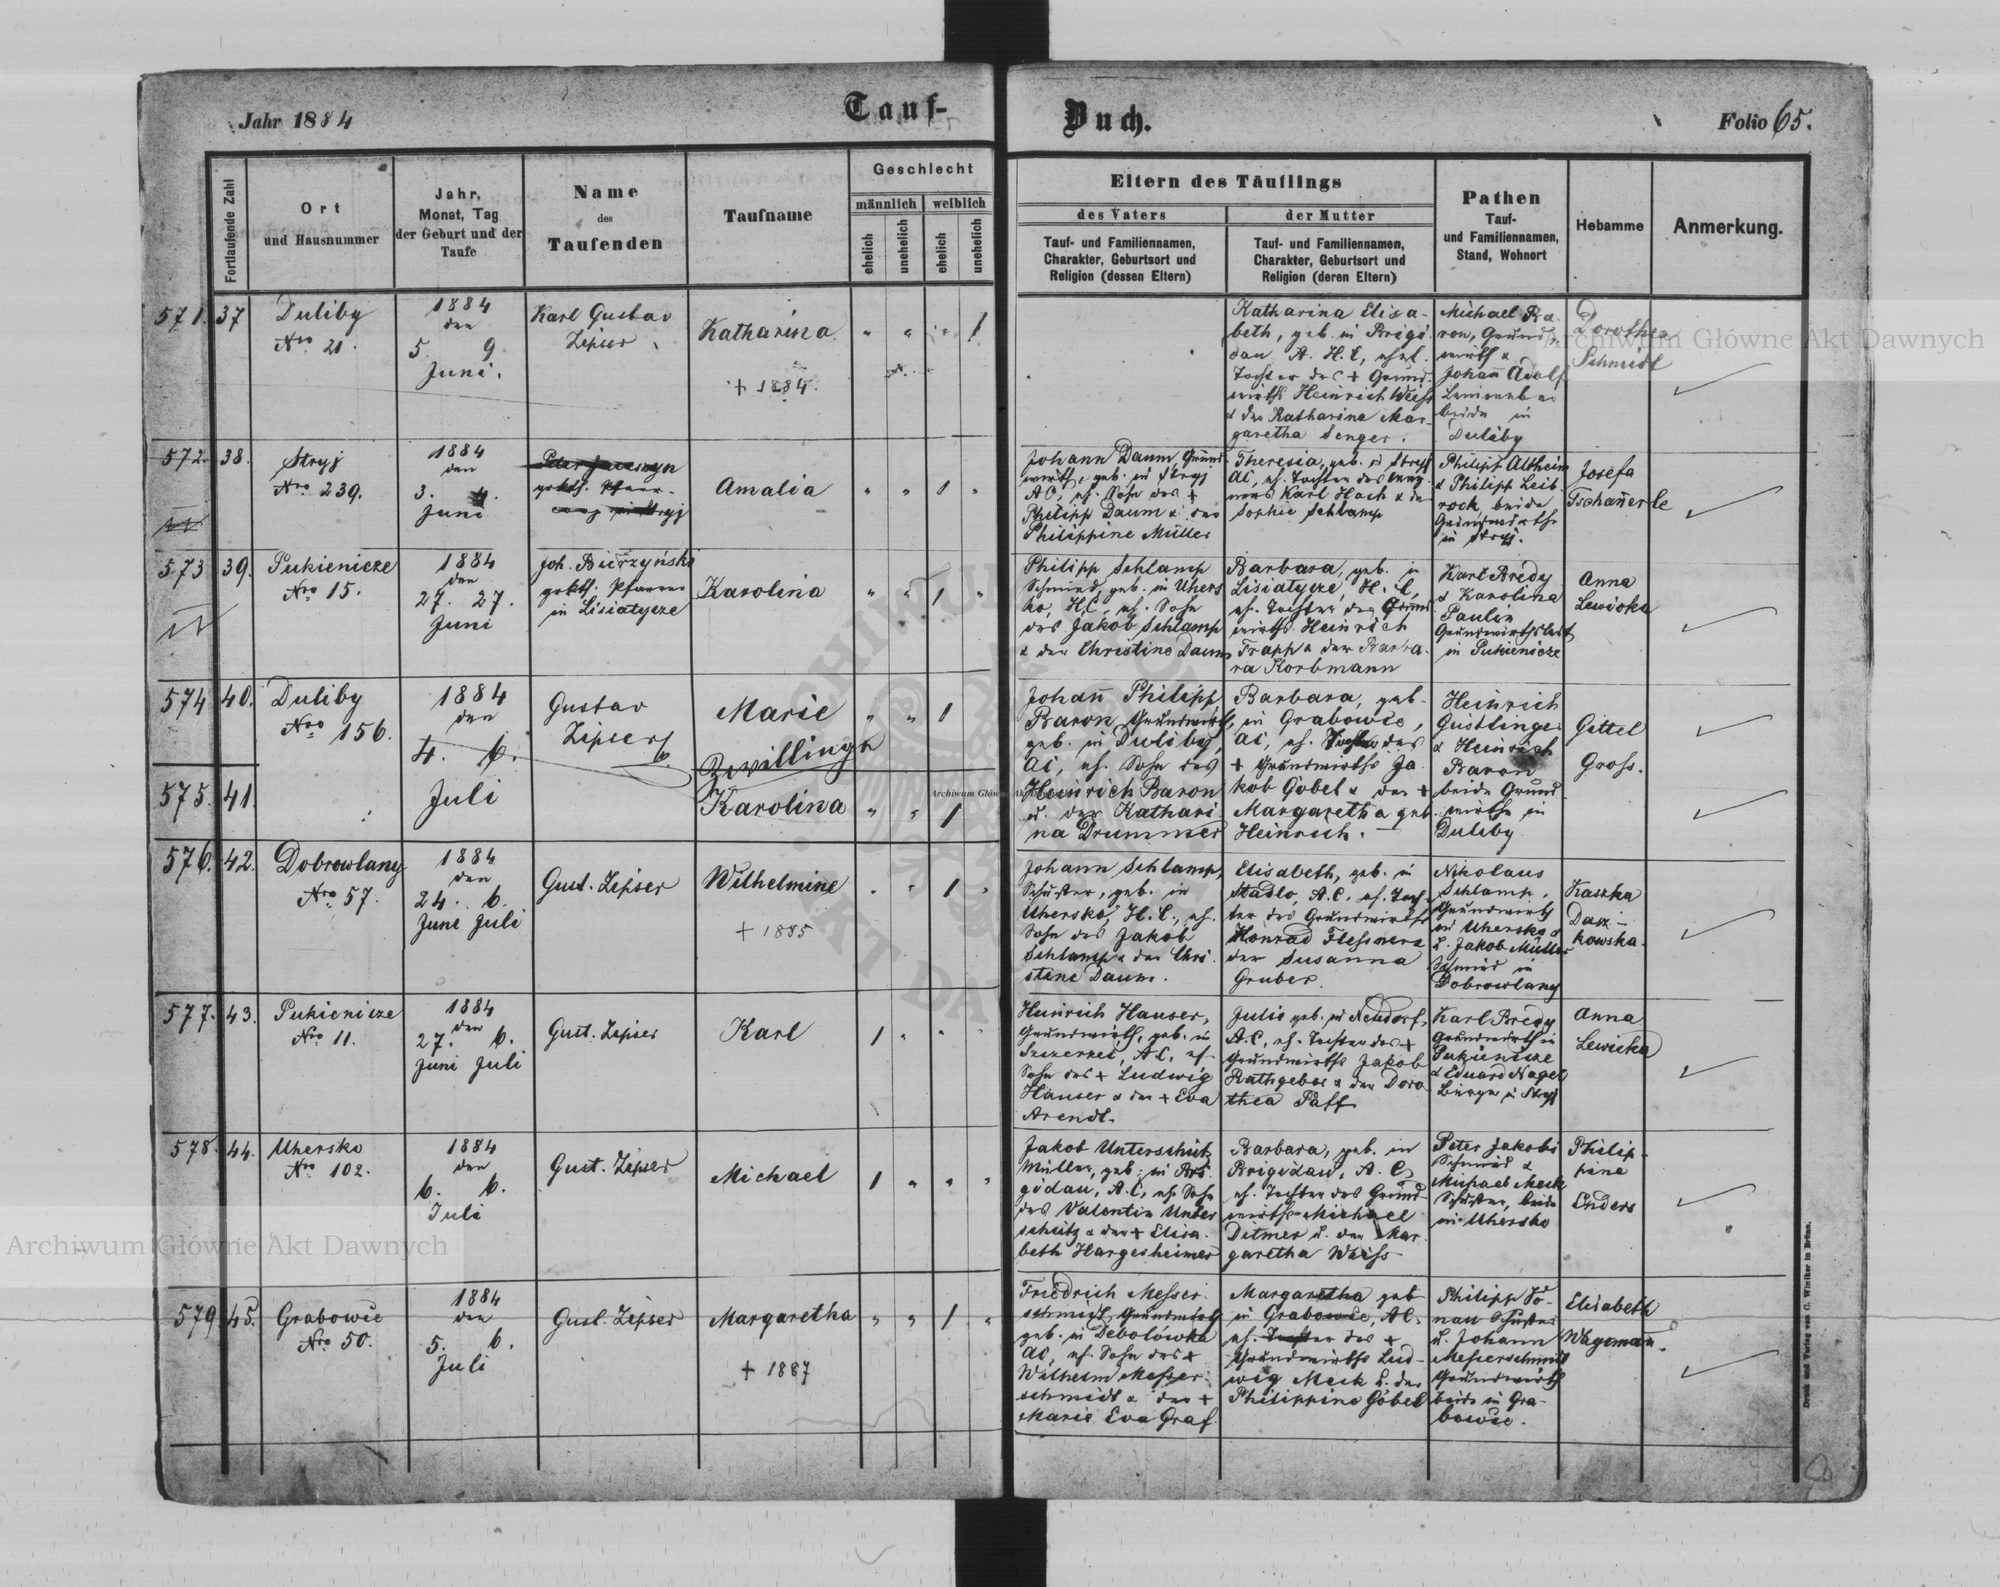 Jahr 1884
Tauf-
Buch.
Folio 65.
Fortlaufende Zahl
Ort
und Hausnummer
Jahr,
Monat, Tag
der Geburt und der
Taufe
Name
des
Taufenden
Taufname
Geschlecht
männlich
weiblich
ehelich
unehelich
ehelich
unehelich
Eltern des Täuflings
des Vaters
der Mutter
Tauf- und Familiennamen,
Charakter, Geburtsort und
Religion (dessen Eltern)
Tauf- und Familiennamen,
Charakter, Geburtsort und
Religion (deren Eltern)
Pathen
Tauf-
und Familiennamen,
Stand, Wohnort
Hebamme
Anmerkung.
571. 37
Duliby
Nro 21.
1884
den
5. 9.
Juni.
Karl Gustav
Zipser
Katharina
+ 1884.
" " " 1
Katharina Elisa-
beth, geb. in Brigi-
dau A. H. C, ehel.
Tochter des + Grund-
wirths Heinrich Weiss
& der Katharina Mar-
garetha Senger.
Michael Ba-
ron, Grund-
wirth &
Johann Adolf
beide in
Duliby
Dorothea
Schmidt
572. 38.
Stryj
Nro 239.
1884
den
3. 4.
Juni
Amalia
" " 1 "
Johann Daum, Grund-
wirth, geb. in Stryj
AC, eh. Sohn des +
Philipp Daum & der
Philippine Müller
Theresia, geb. in Stryj
AC, eh. Tochter des
Karl Hoch & der
Sophie Schlamp
Philipp Altheim
& Philipp Leib-
rock, beide
Grundwirthe
in Stryj.
Josefa
Tschanerle
573 39.
Pukienicze
Nro 15.
1884
den
27. 27.
Juni
Joh. Bierzyński
Pfarrer
in Lisiatycze
Karolina
" " 1 "
Philipp Schlamp
Schmied, geb. in Uhers
ko, H.C, eh. Sohn
des Jakob Schlamp
& der Christine Daum
Barbara, geb. in
Lisiatycze, H. C,
eh. Tochter des Grund
wirths Heinrich
Trapp & der Barba-
ra Korbmann
Karl Bredy
& Karolina
Paulin
Grundwirthsleute
in Pukienicze
Anna
Lewicka
574 40.
Duliby
Nro 156.
1884
den
4. 6.
Juli
Gustav
Zipser
Marie
Zwillinge
" " 1
Johann Philipp
Baron, Grundwirth,
geb. in Duliby,
AC, eh. Sohn des
Heinrich Baron
u. der Kathari
na Drummer
Barbara, geb.
in Grabowce,
AC, eh. Tochter des
+ Grundwirths Ja
kob Göbel & der +
Margaretha geb.
Heinrich.
Heinrich
Geistlinger
& Heinrich
Baron
beide Grund
wirthe in
Duliby.
Gittel
Gross.
575. 41.
Karolina
" " 1
576. 42.
Dobrowlany
Nro 57.
1884
den
24. 6.
Juni Juli
Gust. Zipser
Wilhelmine
+ 1885
" " 1 "
Johann Schlamp,
Schuster, geb. in
Uhersko, H. C., eh.
Sohn des Jakob
Schlamp & der Chri-
stine Daum.
Elisabeth, geb. in
Stadlo, A.C. eh. Toch-
ter des Grundwirths
Konrad Flessner &
der Susanna
Gruber.
Nikolaus
Schlamp,
Grundwirth
in Uhersko &
u. Jakob Müller
Schmied in
Dobrowlany
Kaszka
Dasz-
kowska.
577. 43.
Pukienicze
Nro 11.
1884
den
27. 6.
Juni Juli
Gust. Zipser
Karl
1 " " "
Heinrich Hauser,
Grundwirth, geb. in
Szczerzec, AC, eh.
Sohn des + Ludwig
Hauser & der + Eva
Arendt.
Julie geb. in Neudorf,
A.C, eh. Tochter des +
Grundwirths Jakob
Rathgeber & der Doro
thea Paff
Karl Bredy
Grundwirth in
Pukienicze
& Eduard Nagel
Bürger in Stryj
Anna
Lewicka
578. 44.
Uhersko
Nro 102.
1884
den
6. 6.
Juli
Gust. Zipser
Michael
1 " " "
Jakob Unterschütz
Müller, geb. in Bri
gidau, A.C, eh. Sohn
des Valentin Unter
schütz & der + Elisa-
beth Hargesheimer
Barbara, geb. in
Brigidau, A. C,
eh. Tochter des Grund-
wirths Michael
Ditmer u. der Mar-
garetha Weiss
Peter Jakobi
Schmied &
Michael Meck
Schuster, beide
in Uhersko
Philip-
pine
Enders
579 45.
Grabowce
Nro 50.
1884
den
5. 6.
Juli
Gust. Zipser
Margaretha
+ 1887
" " 1 "
Friedrich Messer-
schmidt, Grundwirth
geb. in Debolówka
AC, eh. Sohn des +
Wilhelm Messer-
schmidt & der +
Marie Eva Graf
Margaretha geb.
in Grabowce, AC.
eh. Tochter des +
Grundwirths Lud-
wig Meck u. der
Philippine Göbel
Philipp Dö-
nau Schuster
u. Johann
Messerschmidt
Grundwirth
beide in Gra-
bowce.
Elisabeth
Wageman.
Druck und Verlag von C. Winiker in Brünn.
Archiwum Główne Akt Dawnych
Archiwum Główne Akt Dawnych